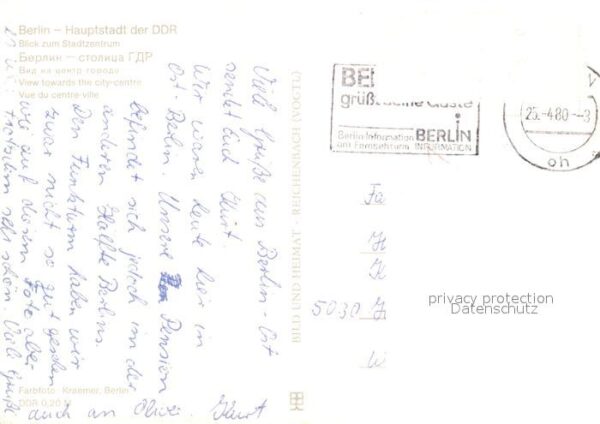 Berlin – Hauptstadt der DDR
Blick zum Stadtzentrum
Берлин — столица ГДР
Вид на центр города
View towards the city-centre
Vue du centre-ville
Viele Grüße aus Berlin-Ost
sendet Euch Kurt.
Wir waren heute hier in
Ost-Berlin. Unsere Pension
befindet sich jedoch in der
anderen Hälfte Berlins.
Den Funkturm haben wir
zwar nicht so gut gesehen
wie auf diesem Foto aber
trotzdem sehr schön. Viele Grüße
auch an Kurt
Farbfoto: Kraemer, Berlin
DDR 0,20 M
BILD UND HEIMAT · REICHENBACH (VOGTL)
BE
grüßt seine Gäste
Berlin-Information
am Fernsehturm
BERLIN
INFORMATION
25.-4.80.--3
oh
5030
privacy protection
Datenschutz